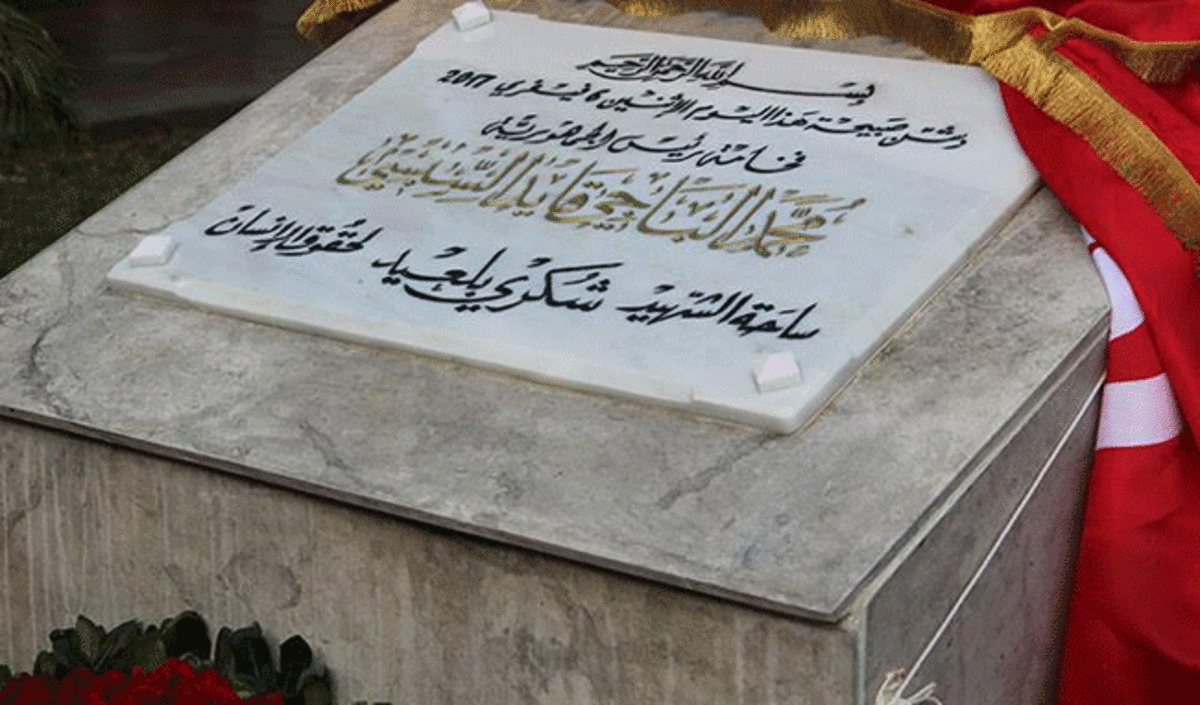 بسم الله الرحمن الرحيم
دشن صبيحة هذا اليوم الإثنين 6 فيفري 2017
فخامة رئيس الجمهورية
محمد الباجي قايد السبسي
ساحة الشهيد شكري بلعيد لحقوق الإنسان